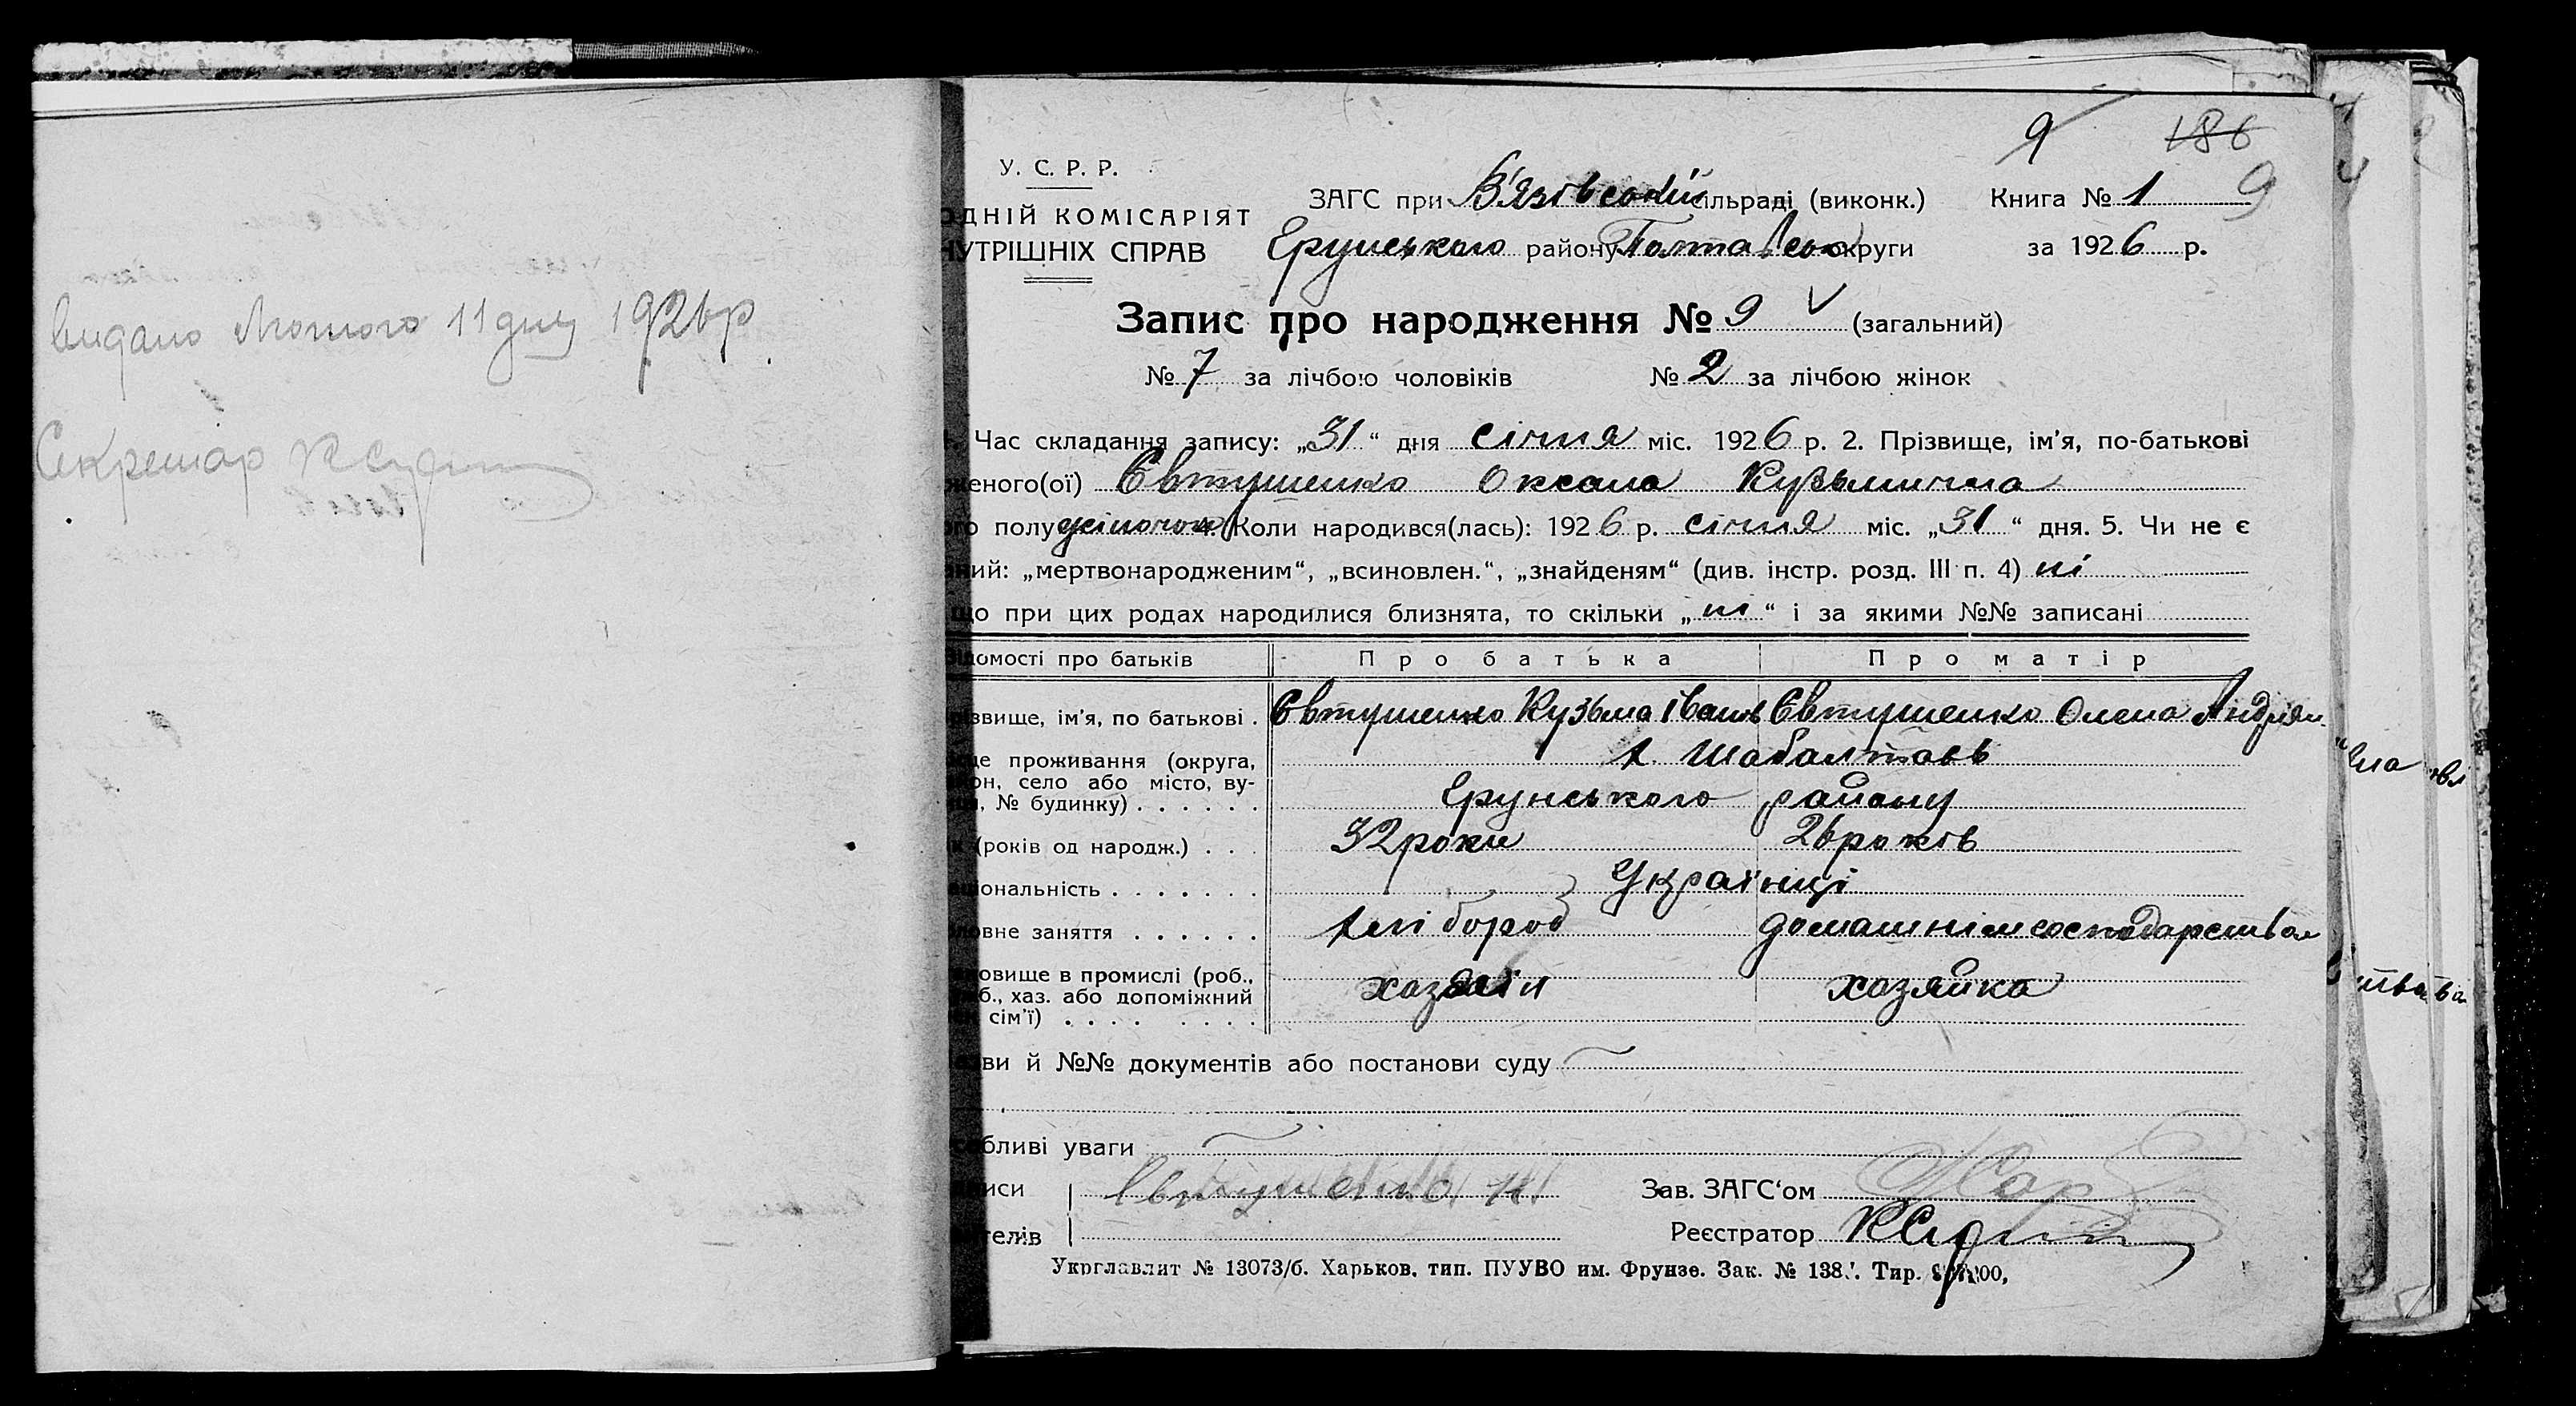 видано Лютого 11 дня 1926 р
Секретар
9 186
У. С. Р. Р.
ЗАГС при В'язівській сільраді (виконк.) Книга № 1 9
ОДНІЙ КОМІСАРІЯТ
НУТРІШНІХ СПРАВ
району Полтавсько округи за 1926 р.
Запис про народження № 9 V (загальний)
№ 7 за лічбою чоловіків № 2 за лічбою жінок
Час складання запису: „31“ дня січня міс. 1926 р. 2. Прізвище, ім'я, по-батькові
женого(ої) Євтушенко Оксана Кузьмична
го полу жіночого 4. Коли народився(лась): 1926 р. січня міс. „31“ дня. 5. Чи не є
ний: „мертвонародженим“, „всиновлен.“, „знайденям“ (див. інстр. розд. III п. 4) ні
що при цих родах народилися близнята, то скільки „ні“ і за якими №№ записані
ідомості про батьків Про батька Про матір
ізвище, ім'я, по батькові . Євтушенко Кузьма Іванов Євтушенко Олена Андріян.
це проживання (округа,
он, село або місто, ву-
, № будинку) . . . . . .
х. Шабалтаєв
району
(років од народж.) . . . 32 роки 26 років
ціональність . . . . . . . Українці
овне заняття . . . . . . хлібороб домашнім господарством
овище в промислі (роб.,
б., хаз. або допоміжний
сім'ї) . . . . . . . .
хазяїн хазяйка
ви й №№ документів або постанови суду
бливі уваги
иси Євтушенко К Зав. ЗАГС'ом
телів Реєстратор
Укрглавлит № 13073/б. Харьков, тип. ПУУВО им. Фрунзе. Зак. № 138 . Тир. 00,